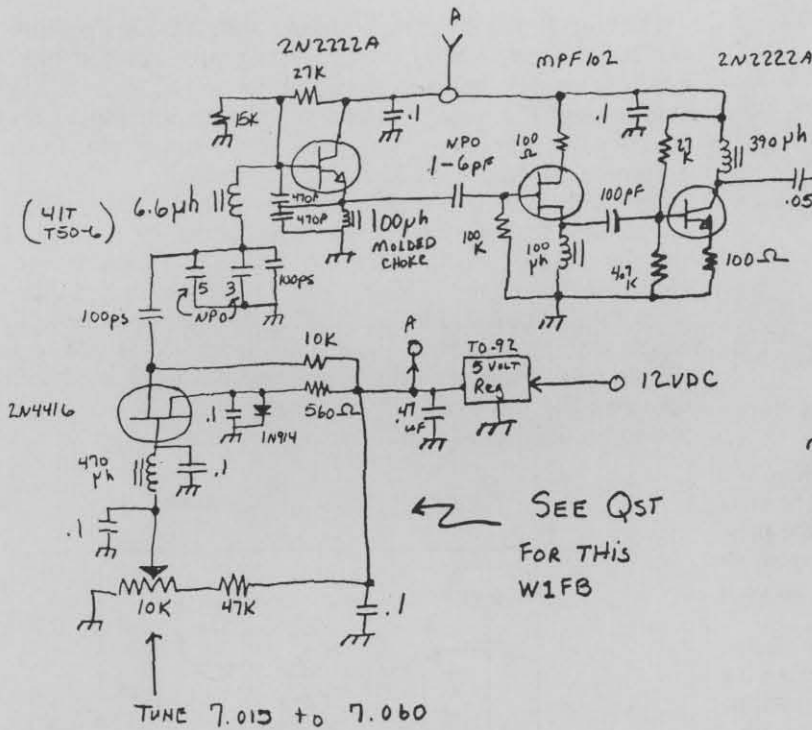 A
2N2222A
MPF102
2N2222A
27K
15K
.1
NPO
1-6pF
100
Ω
.1
27
K
390 µh
(41T
T50-6)
6.6µh
470P
470P
100µh
MOLDED
CHOKE
100
K
100pF
.05
100
µh
4.7
K
100Ω
5
3
100ps
NPO
100ps
10K
A
TO-92
5 VOLT
Reg
12VDC
2N4416
.1
1N914
560Ω
.47
uF
470
µh
.1
.1
SEE QST
FOR THIS
W1FB
10K
47K
.1
TUNE 7.015 to 7.060